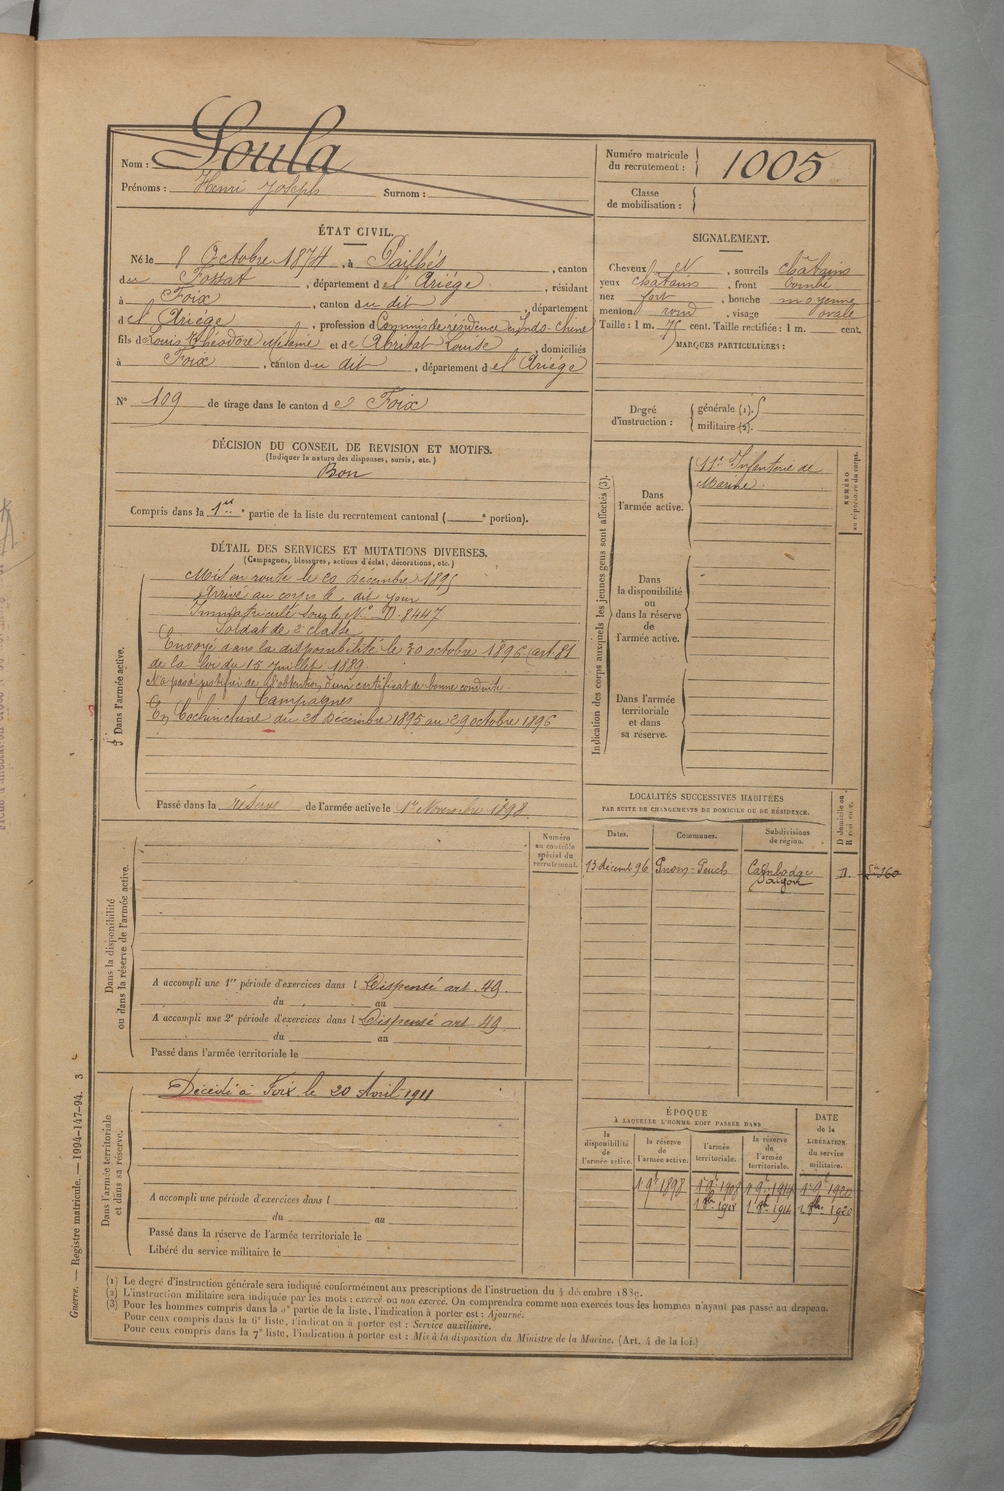 Nom : Soula
Prénoms : Henri Joseph Surnom :
Numéro matricule du recrutement : 1005
Classe de mobilisation :
ÉTAT CIVIL.
Né le 8 Octobre 1874, à Pailhés, canton
du Fossat, département de l'Ariége, résidant
à Foix, canton du dit, département
d el Ariége, profession d Commis de résidence en Indo-Chine
fils de Louis Théodore et de Abribat Louise, domiciliés
à Foix, canton du dit, département de l'Ariége
N° 109 de tirage dans le canton de Foix
DÉCISION DU CONSEIL DE REVISION ET MOTIFS.
(Indiquer la nature des dispenses, sursis, etc.)
Bon
Compris dans la 1re partie de la liste du recrutement cantonal ( e portion).
SIGNALEMENT.
Cheveux et , sourcils châtains
yeux châtains , front bombé
nez fort , bouche moyenne
menton rond , visage ovale
Taille : 1 m. 75 cent. Taille rectifiée : 1 m. cent.
MARQUES PARTICULIÈRES :
Degré d'instruction : générale (1). militaire (2).
DÉTAIL DES SERVICES ET MUTATIONS DIVERSES.
(Campagnes, blessures, actions d'éclat, décorations, etc.)
Dans l'armée active.
Mis en route le 20 Décembre 1895
Arrivé au corps le dit jour
Immatriculé sous le N° D. 8447
Soldat de 2e classe
Envoyé dans la disponibilité le 30 octobre 1896 (art. 81
de la loi du 15 juillet 1889.
N'a pas à justifier de l'obtention d'un certificat de bonne conduite
Campagnes
En Cochinchine du 20 Décembre 1895 au 29 octobre 1896
Passé dans la réserve de l'armée active le 1er Novembre 1898
Indication des corps auxquels les jeunes gens sont affectés (3).
NUMÉRO au répertoire du corps.
Dans l'armée active.
11e Infanterie de
Marine.
Dans la disponibilité ou dans la réserve de l'armée active.
Dans l'armée territoriale et dans sa réserve.
LOCALITÉS SUCCESSIVES HABITÉES
PAR SUITE DE CHANGEMENTS DE DOMICILE OU DE RÉSIDENCE.
Dates. Communes. Subdivisions de région. D domicile ou R résidence.
13 décemb 96 Pnom-Penh Cambodge Saigon D.
Dans la disponibilité ou dans la réserve de l'armée active.
Numéro au contrôle spécial du recrutement.
A accompli une 1re période d'exercices dans l Dispensé art. 49.
du au
A accompli une 2e période d'exercices dans l Dispensé art 49
du au
Passé dans l'armée territoriale le
Dans l'armée territoriale et dans sa réserve.
Décédé à Foix le 20 Avril 1911
A accompli une période d'exercices dans l
du au
Passé dans la réserve de l'armée territoriale le
Libéré du service militaire le
ÉPOQUE
À LAQUELLE L'HOMME DOIT PASSER DANS
la disponibilité de l'armée active.
la réserve de l'armée active.
l'armée territoriale.
la réserve de l'armée territoriale.
DATE de la LIBÉRATION du service militaire.
1 9e 1898 1 9e 1908 1 9e 1914 1 9e 1920
1 8bre 1908 1 8bre 1914 1 8bre 1920
(1) Le degré d'instruction générale sera indiqué conformément aux prescriptions de l'instruction du 4 décembre 1889.
(2) L'instruction militaire sera indiquée par les mots : exercé ou non exercé. On comprendra comme non exercés tous les hommes n'ayant pas passé au drapeau.
(3) Pour les hommes compris dans la 5e partie de la liste, l'indication à porter est : Ajourné.
Pour ceux compris dans la 6e liste, l'indication à porter est : Service auxiliaire.
Pour ceux compris dans la 7e liste, l'indication à porter est : Mis à la disposition du Ministre de la Marine. (Art. 4 de la loi.)
Guerre. — Registre matricule. — 1994-147-94. 3